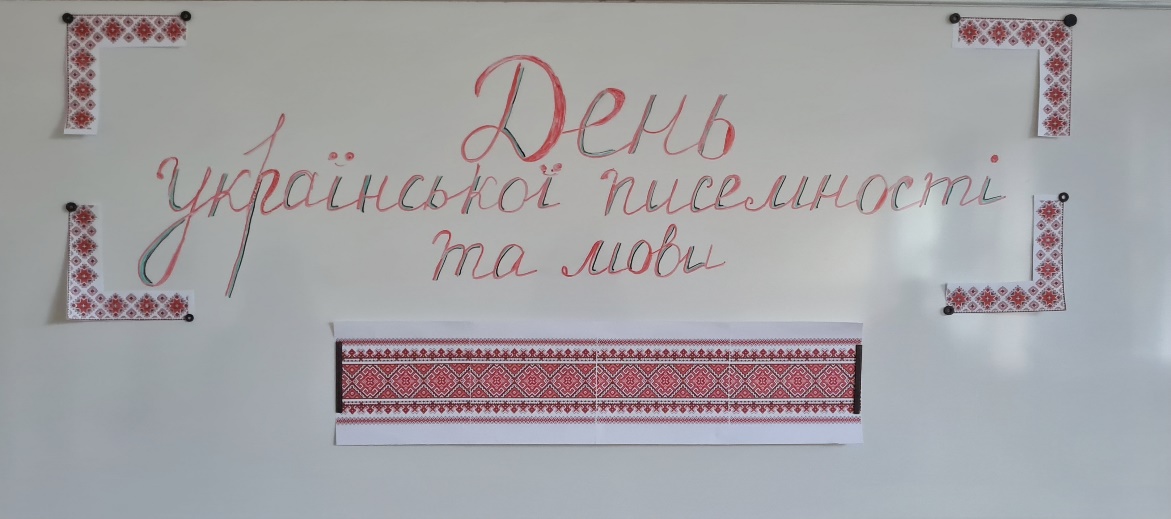 День
української писемності
та мови